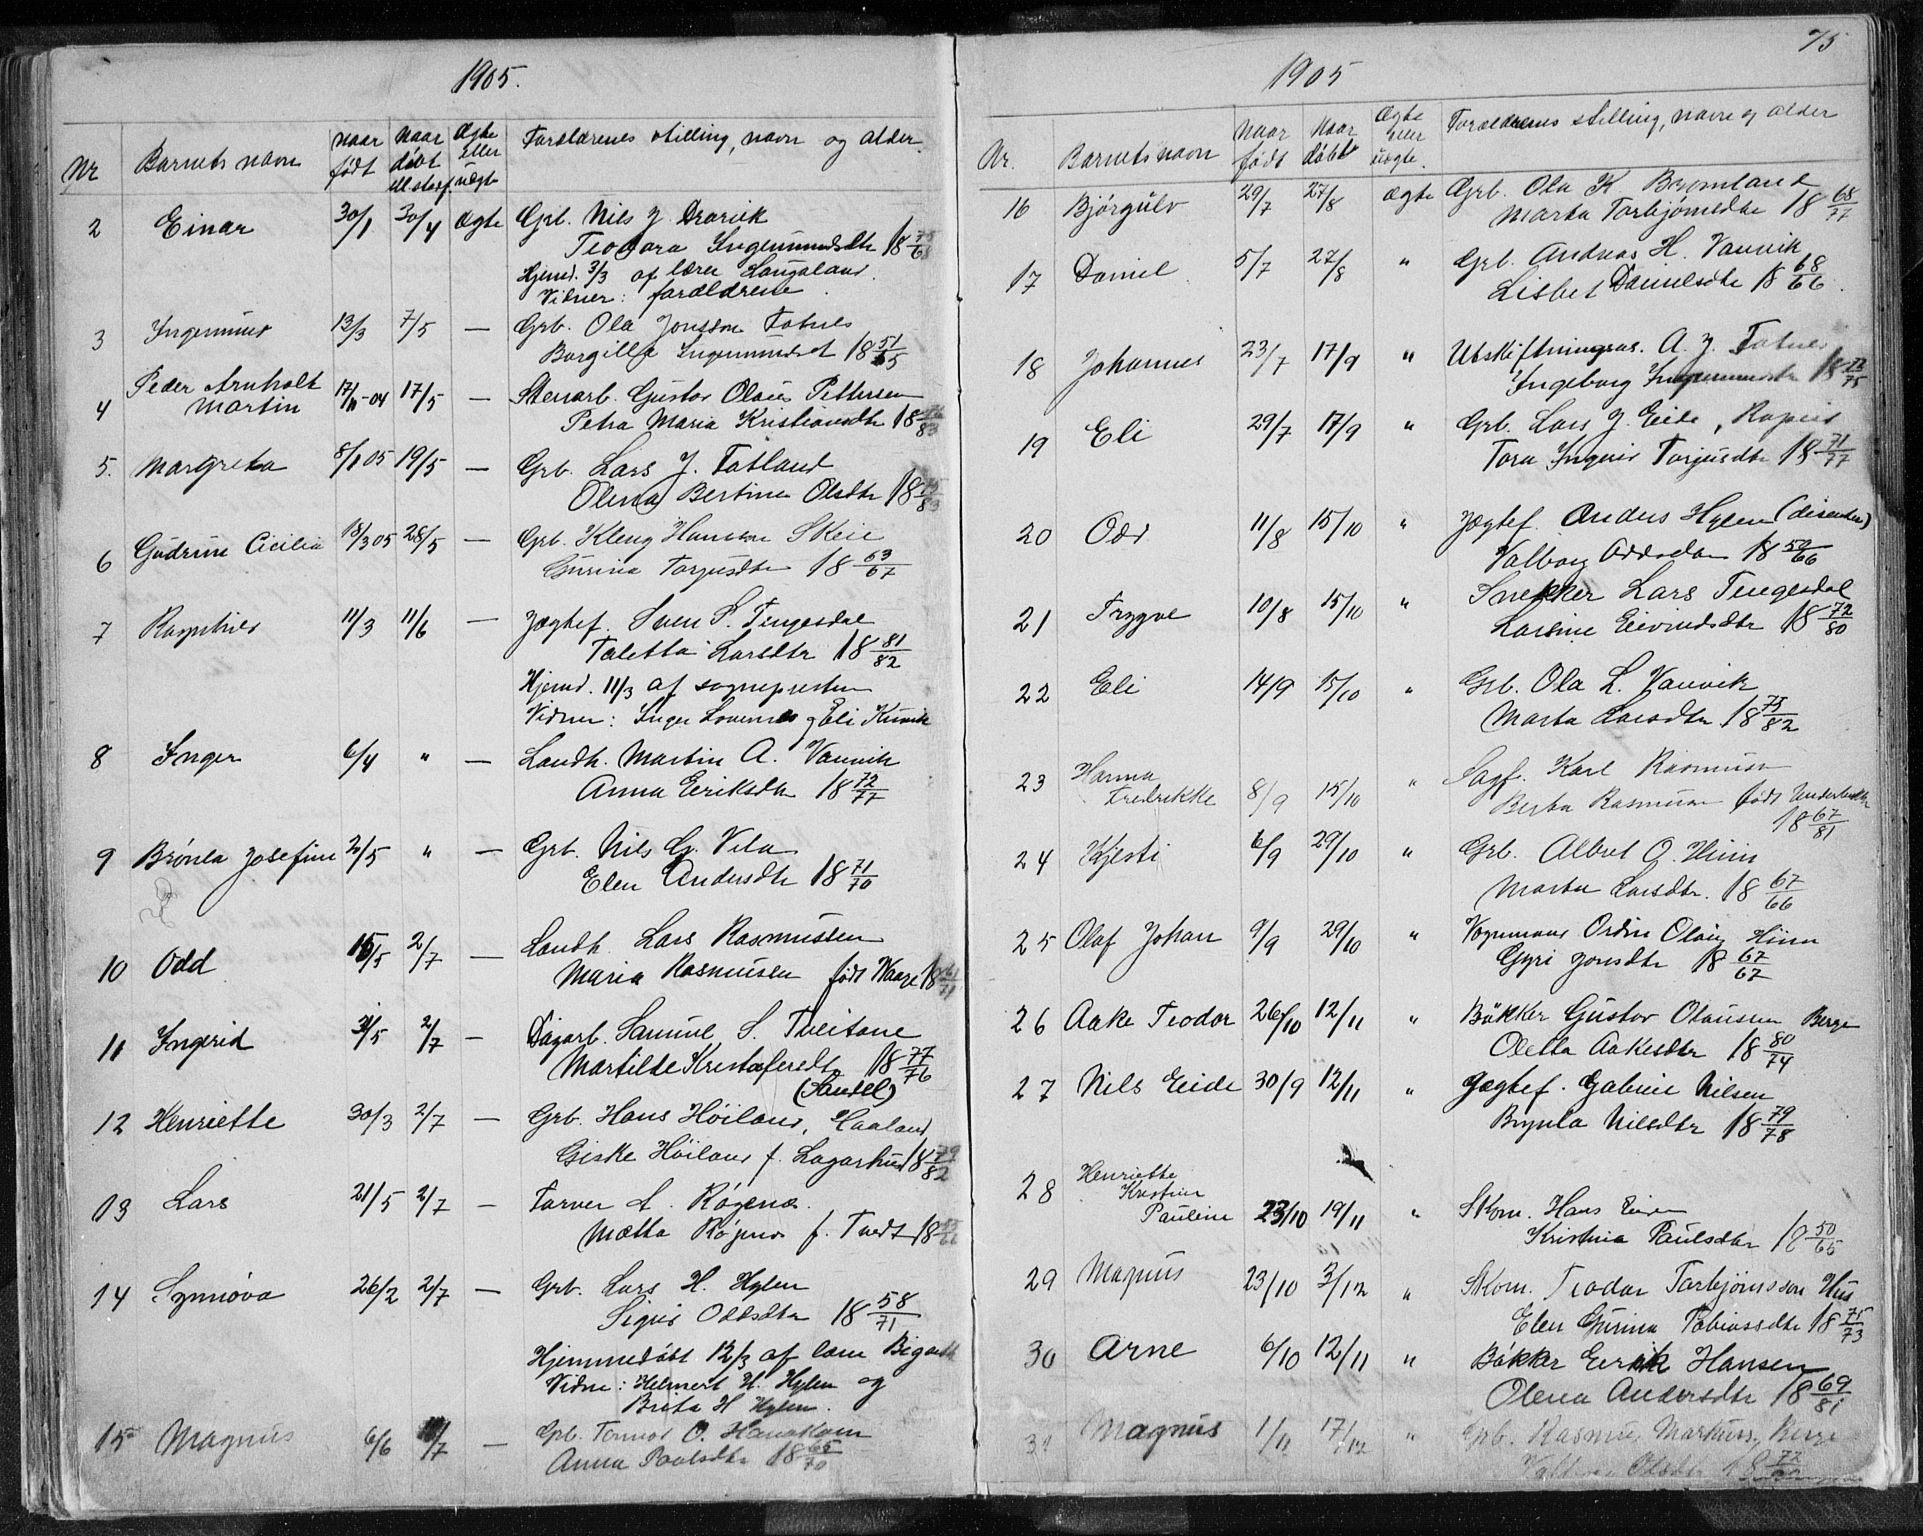 1905.
Nr
Barnets navn
Naar født
Naar døbt ell. stadf.
Ægte eller uægte
Forældrenes stilling, navn og alder.
2 Einar 30/1 30/4 ægte Grb. Nils J. Drarvik
Teodora Ingemundsdtr 18
Hjemd. 3/3 af lærer Laugaland.
Vidner: forældrene.
3 Ingemund 13/3 7/5 — Grb. Ola Jonsson Fatnes
Borgilla Ingemundsdt 18 51/65
4 Peder Arnholt
Martin 17/11-04 17/5 — Stenarb. Gustav Olaus Pettersen
Petra Maria Kristiansdtr 18 /83
5. Margreta 8/1 05 19/5 — Grb. Lars J. Fatland
Olena Bertine Olsdtr 18
6 Gudrun Cicilia 18/3 05 28/5 — Grb. Kleng Hansson Skeie
Gurina Torjusdtr 18 63/67
7 Ragnhild 11/3 11/6 — Jægtef. Sven S. Tengesdal
Taletta Larsdtr 18 81/82
Hjemd. 11/3 af sognepresten
Vidner: Inger Lovernes og Eli Kunvik
8 Inger 6/4 " — Landh. Martin A. Vanvik
Anna Eriksdtr 18 72/77
9 Brønla Josefine 2/5 " — Grb. Nils G. Vela
Elen Andersdtr 18 71/70
10 Odd 15/5 2/7 — Landh. Lars Rasmussen
Maria Rasmussen født Waage 18 /71
11 Ingerid 3/5 2/7 — Dagarb. Samuel S. Tveitane
Martilde Kristofersdtr 18 77/76
(Sandel)
12 Henriette 30/3 2/7 — Grb. Hans Høiland, Haaland
Giske Høiland f. Lagarhus 18 79/82
13 Lars 21/5 2/7 — Farver A. Røgenes
Mætta Røgenes f. Tvedt 18
14 Synnøva 26/2 2/7 — Grb. Lars H. Hylen
Sigrid Oddsdtr 18 58/71
Hjemmedøbt 12/3 af lærer
Vidne: Helmert H. Hylen og
Brita H Hylen.
15 Magnus 6/6 /7 — Grb. Tormod O. Hanakam
Anna Paulsdtr 18 65/70
75
1905
Nr.
Barnets navn
Naar født
Naar døbt
Ægte eller uægte.
Forældrenes stilling, navn og alder
16 Bjørgulv 29/7 27/8 ægte Grb. Ola K. Bromland
Marta Torbjørnsdtr 18 68/77
17 Daniel 5/7 27/8 " Grb. Andreas H. Vanvik
Lisbet Danielsdtr 18 68/66.
18 Johannes 23/7 17/9 " Utskiftningsas. A. J. Fatnes
Ingeborg Ingemundsdtr 18 /75
19 Eli 29/7 17/9 " Grb. Lars J. Eide,
Tora Ingrid Torjusdtr 18 71/77
20 Odd 11/8 15/10 " Jægtef. Anders Hylen (disenter)
Valborg Oddsdtr 18 59/66
21 Trygve 10/8 15/10 " Snekker Lars Tengesdal
Larsine Eivindsdtr 18 72/80
22 Eli 14/9 15/10 " Grb. Ola L. Vanvik
Marta Larsdtr 18 75/82
23 Hanna
Fredrikke 8/9 15/10 " Sagf. Karl Rasmussen
Berta Rasmussen født
18 67/81
24 Kjesti 6/9 29/10 " Grb. Albert O. Hiim
Marta Larsdtr. 18 67/66
25 Olaf Johan 9/9 29/10 " Vognmand Ordin Olaus Hiim
Gyri Jonsdtr 18 67/67
26 Aake Teodor 26/10 12/11 " Bøkker Gustav Olausen Berge
Oletta Aakesdtr 18 80/74
27 Nils Eide 30/9 12/11 " Jægtef. Gabriel Nilsen
Brynla Nilsdtr 18 79/78
28 Henriette
Kristine
Pauline 23/10 19/11 " Skom. Hans Eide
Kristina Paulsdtr 18 50/65
29 Magnus 23/10 3/12 " Skom. Teodor Torbjørnsson Hus
Elen Gurina Tobiasdtr 18 75/73
30 Arne 6/10 12/11 " Bøkker Eirik Hansen
Olena Andersdtr 18 69/81
31 Magnus 1/11 17/12 " Grb. Rasmus Markuss. Berge
Olsdtr 18